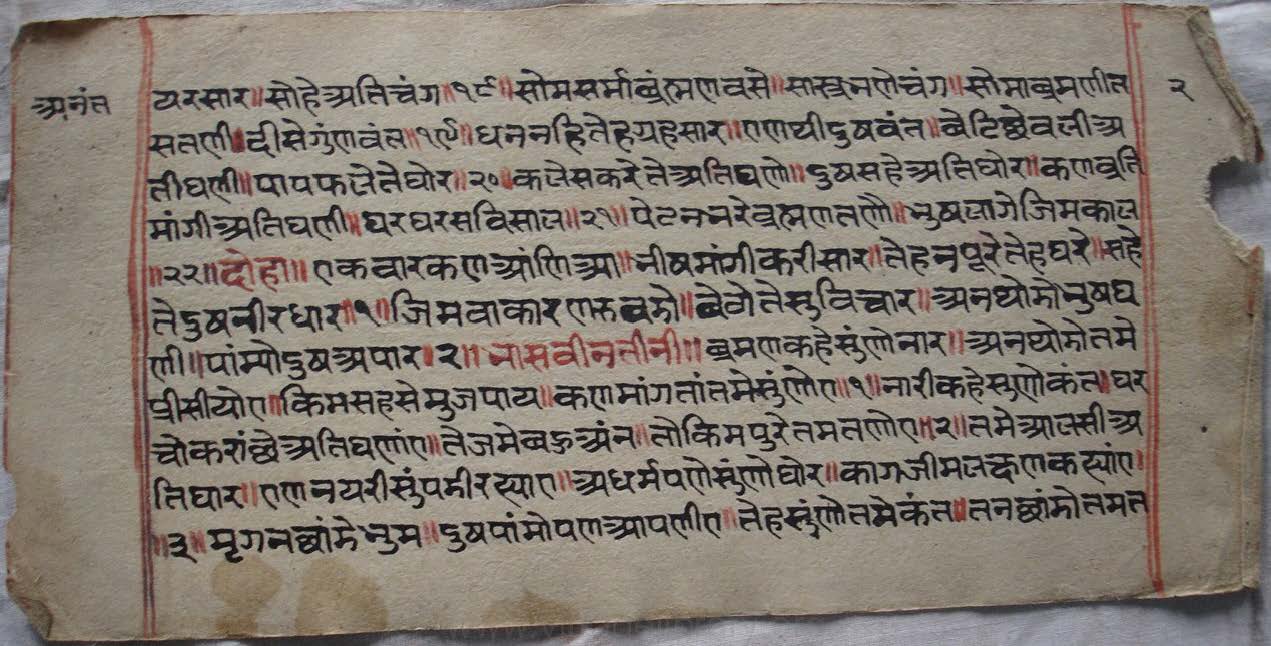 अनंत
२
यरसार॥सोहेअतिचंग॥१८॥सोमसर्माब्रंह्मणवसे॥सास्त्रनणेचंग॥सोमाब्रमणीत
सतणी॥दीसेगुंणवंत॥१९॥धननहितेहग्रहसार॥एणथीदुषवंत॥बेटिछेवलीअ
तीघणी॥पापफलेतेघोर॥२०॥कलेसकरेतेअतिघणो॥दुषसहेअतिघोर॥कणव्रति
मांगीअतिघणी॥घरघरसविसाल॥२१॥पेटनभरेब्रह्मणतणो॥भुषलागेजिमकाल
॥२२॥दोहा॥एकवारकणआंणिआ॥भीषमांगीकरीसार॥तेहनपूरेतेहघरे॥सहे
तेदुषनीरधार॥१॥जिमवाकारण॥बेगेतेसुविचार॥अनथोमोभुषघ
णी॥पांम्योदुषअपार॥२॥भासवीनतीनी॥ब्रमणकहेसुंणोनार॥अनथोमोतमे
प्रीसीयोए॥किमसहसेमुजपाय॥कणमांगतांतमेसुंणोए॥१॥नारीकहेसुणोकंत॥घर
चोकरांछेअतिघणांए॥तेजमेबहुअंन॥तोकिमपुरेतमतणोए॥२॥तमेआलसीअ
तिघोर॥एणनयरीसुंपमीरह्याए॥अधर्मपणेसुंणोघोर॥कागजीमलक्षणकह्यांए॥
३॥मृगनछांमेभुम॥दुषपांमोपणआपणीए॥तेहसुंणोतमेकंत॥तनछांमोतमत